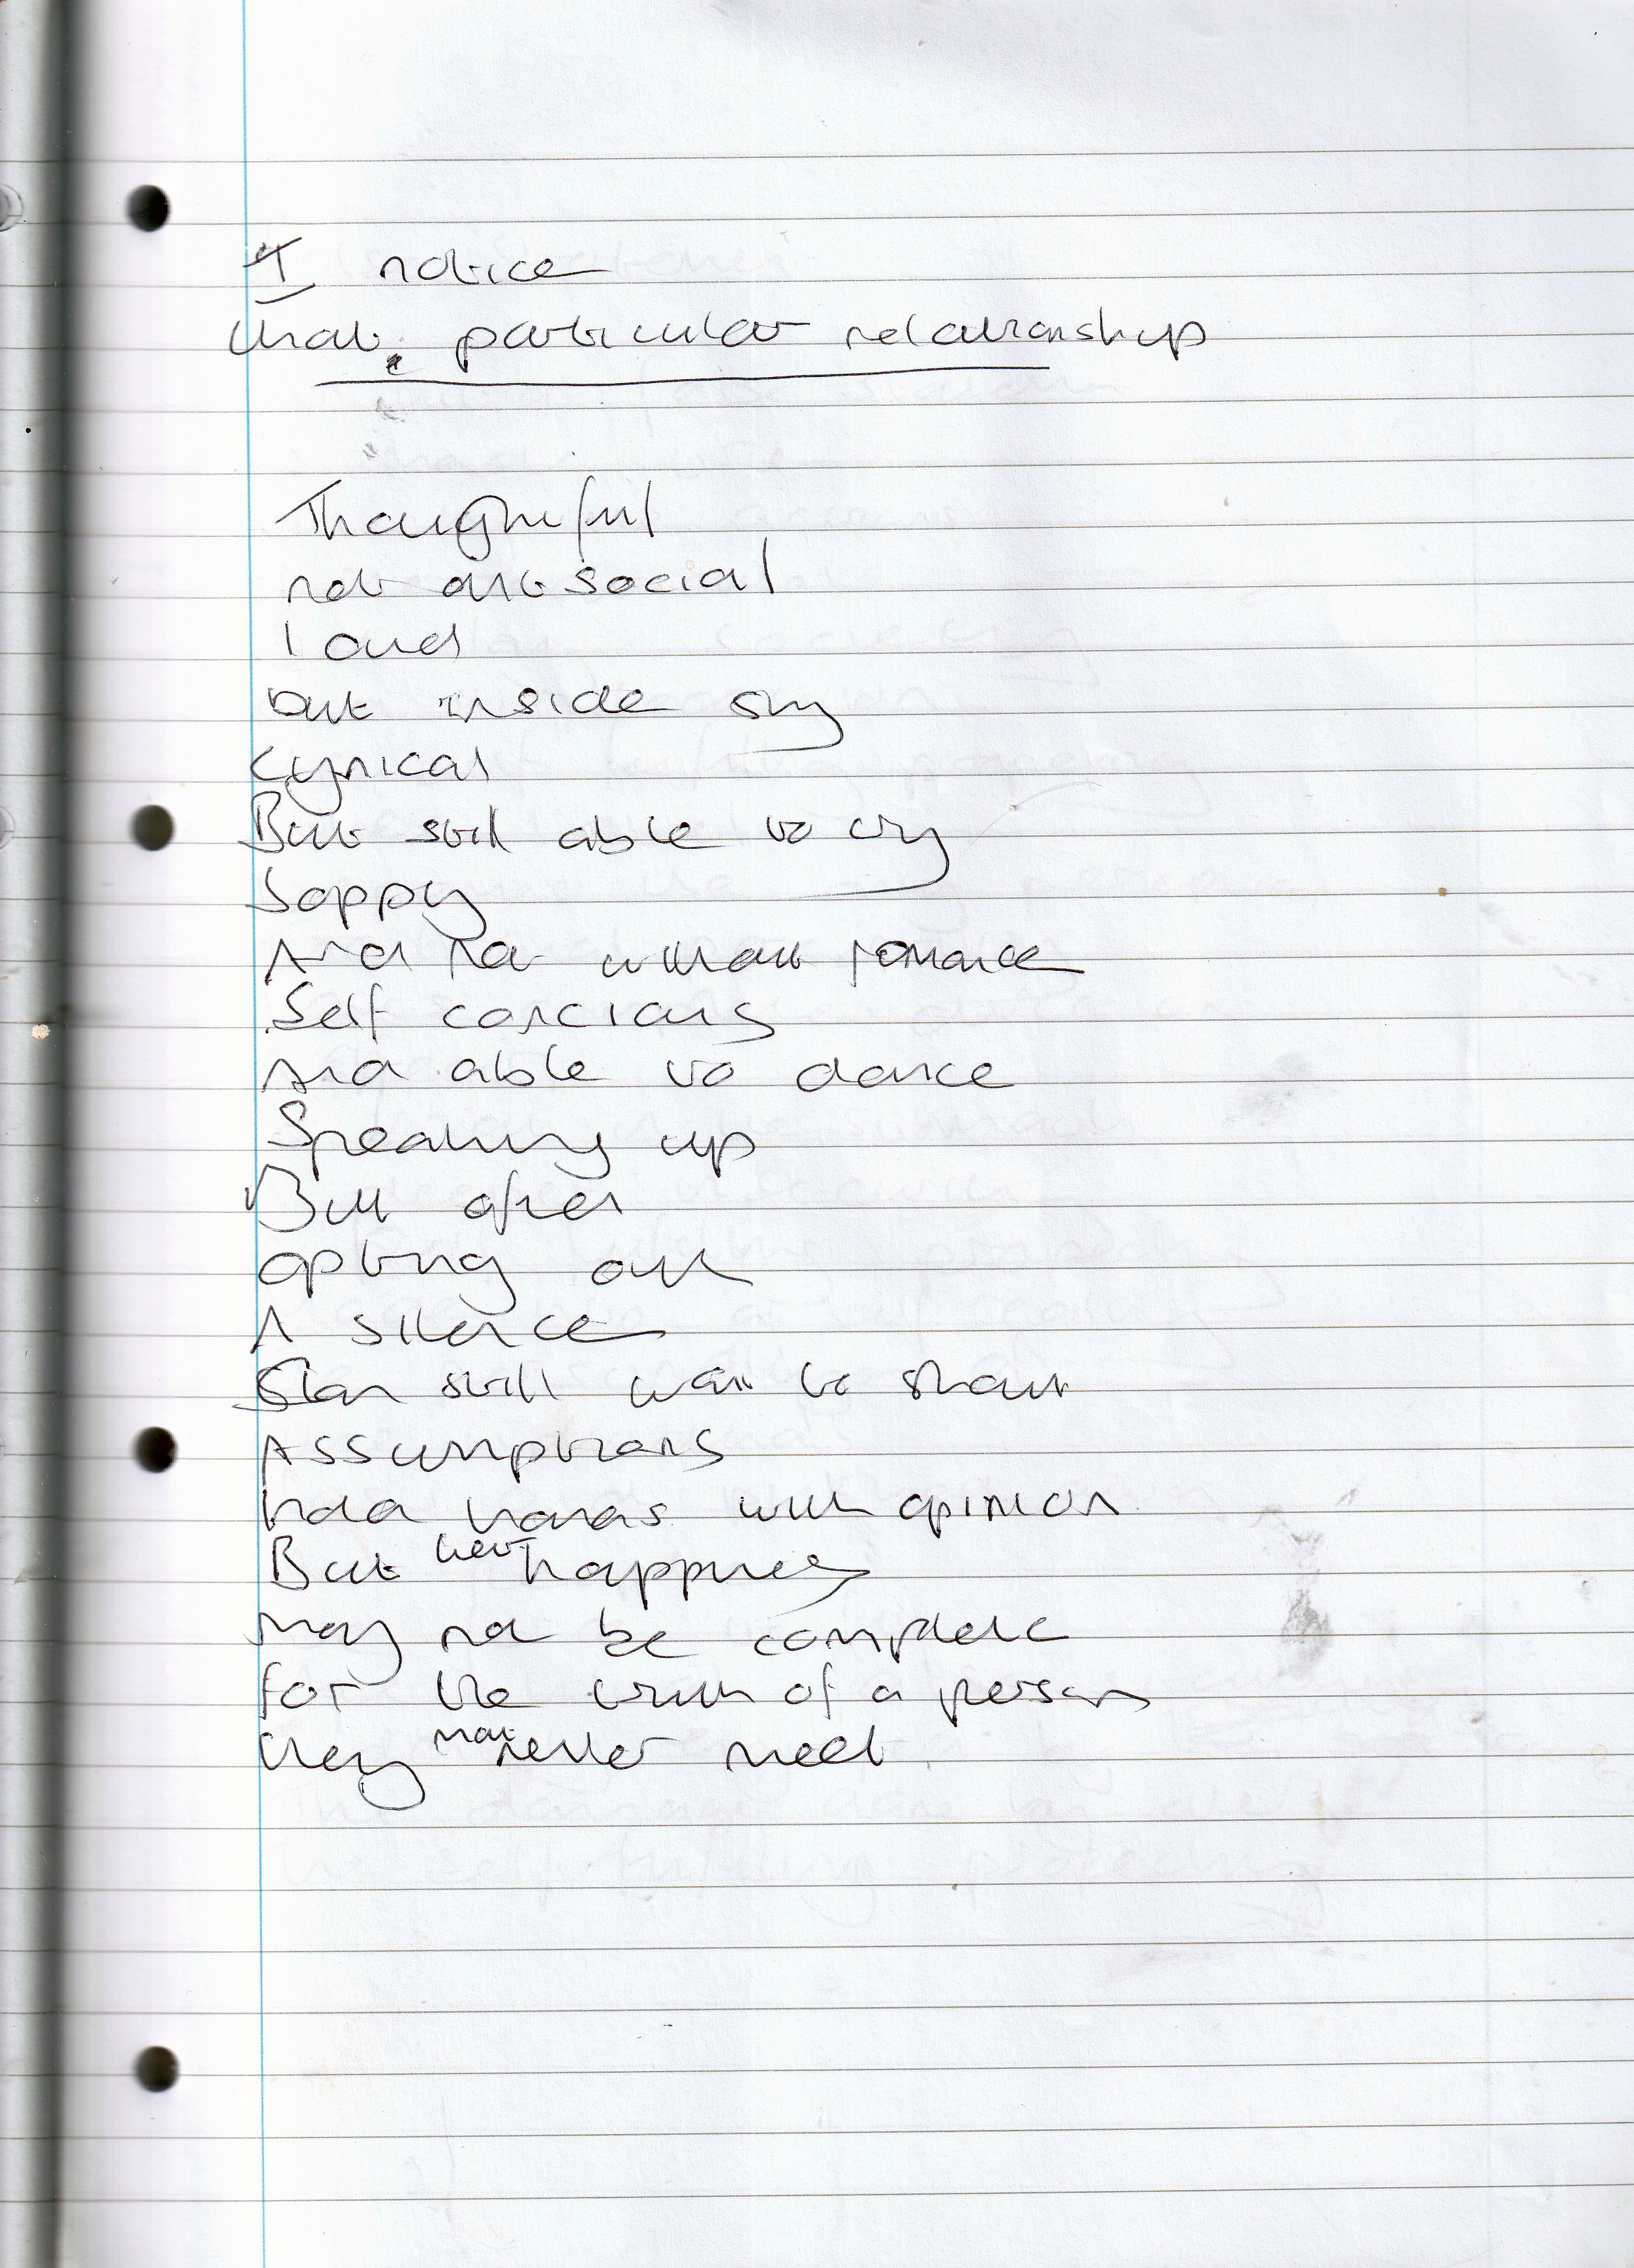 I notice
that particular relationship
Thoughtful
not antisocial
loud
but inside shy
Cynical
But still able to cry
Soppy
And not without romance
Self concious
And able to dance
Speaking up
But often
opting out
A silence
still want to shout
Assumptions
hold hands with opinion
But their happiness
may not be complete
for the truth of a person
they may never meet.